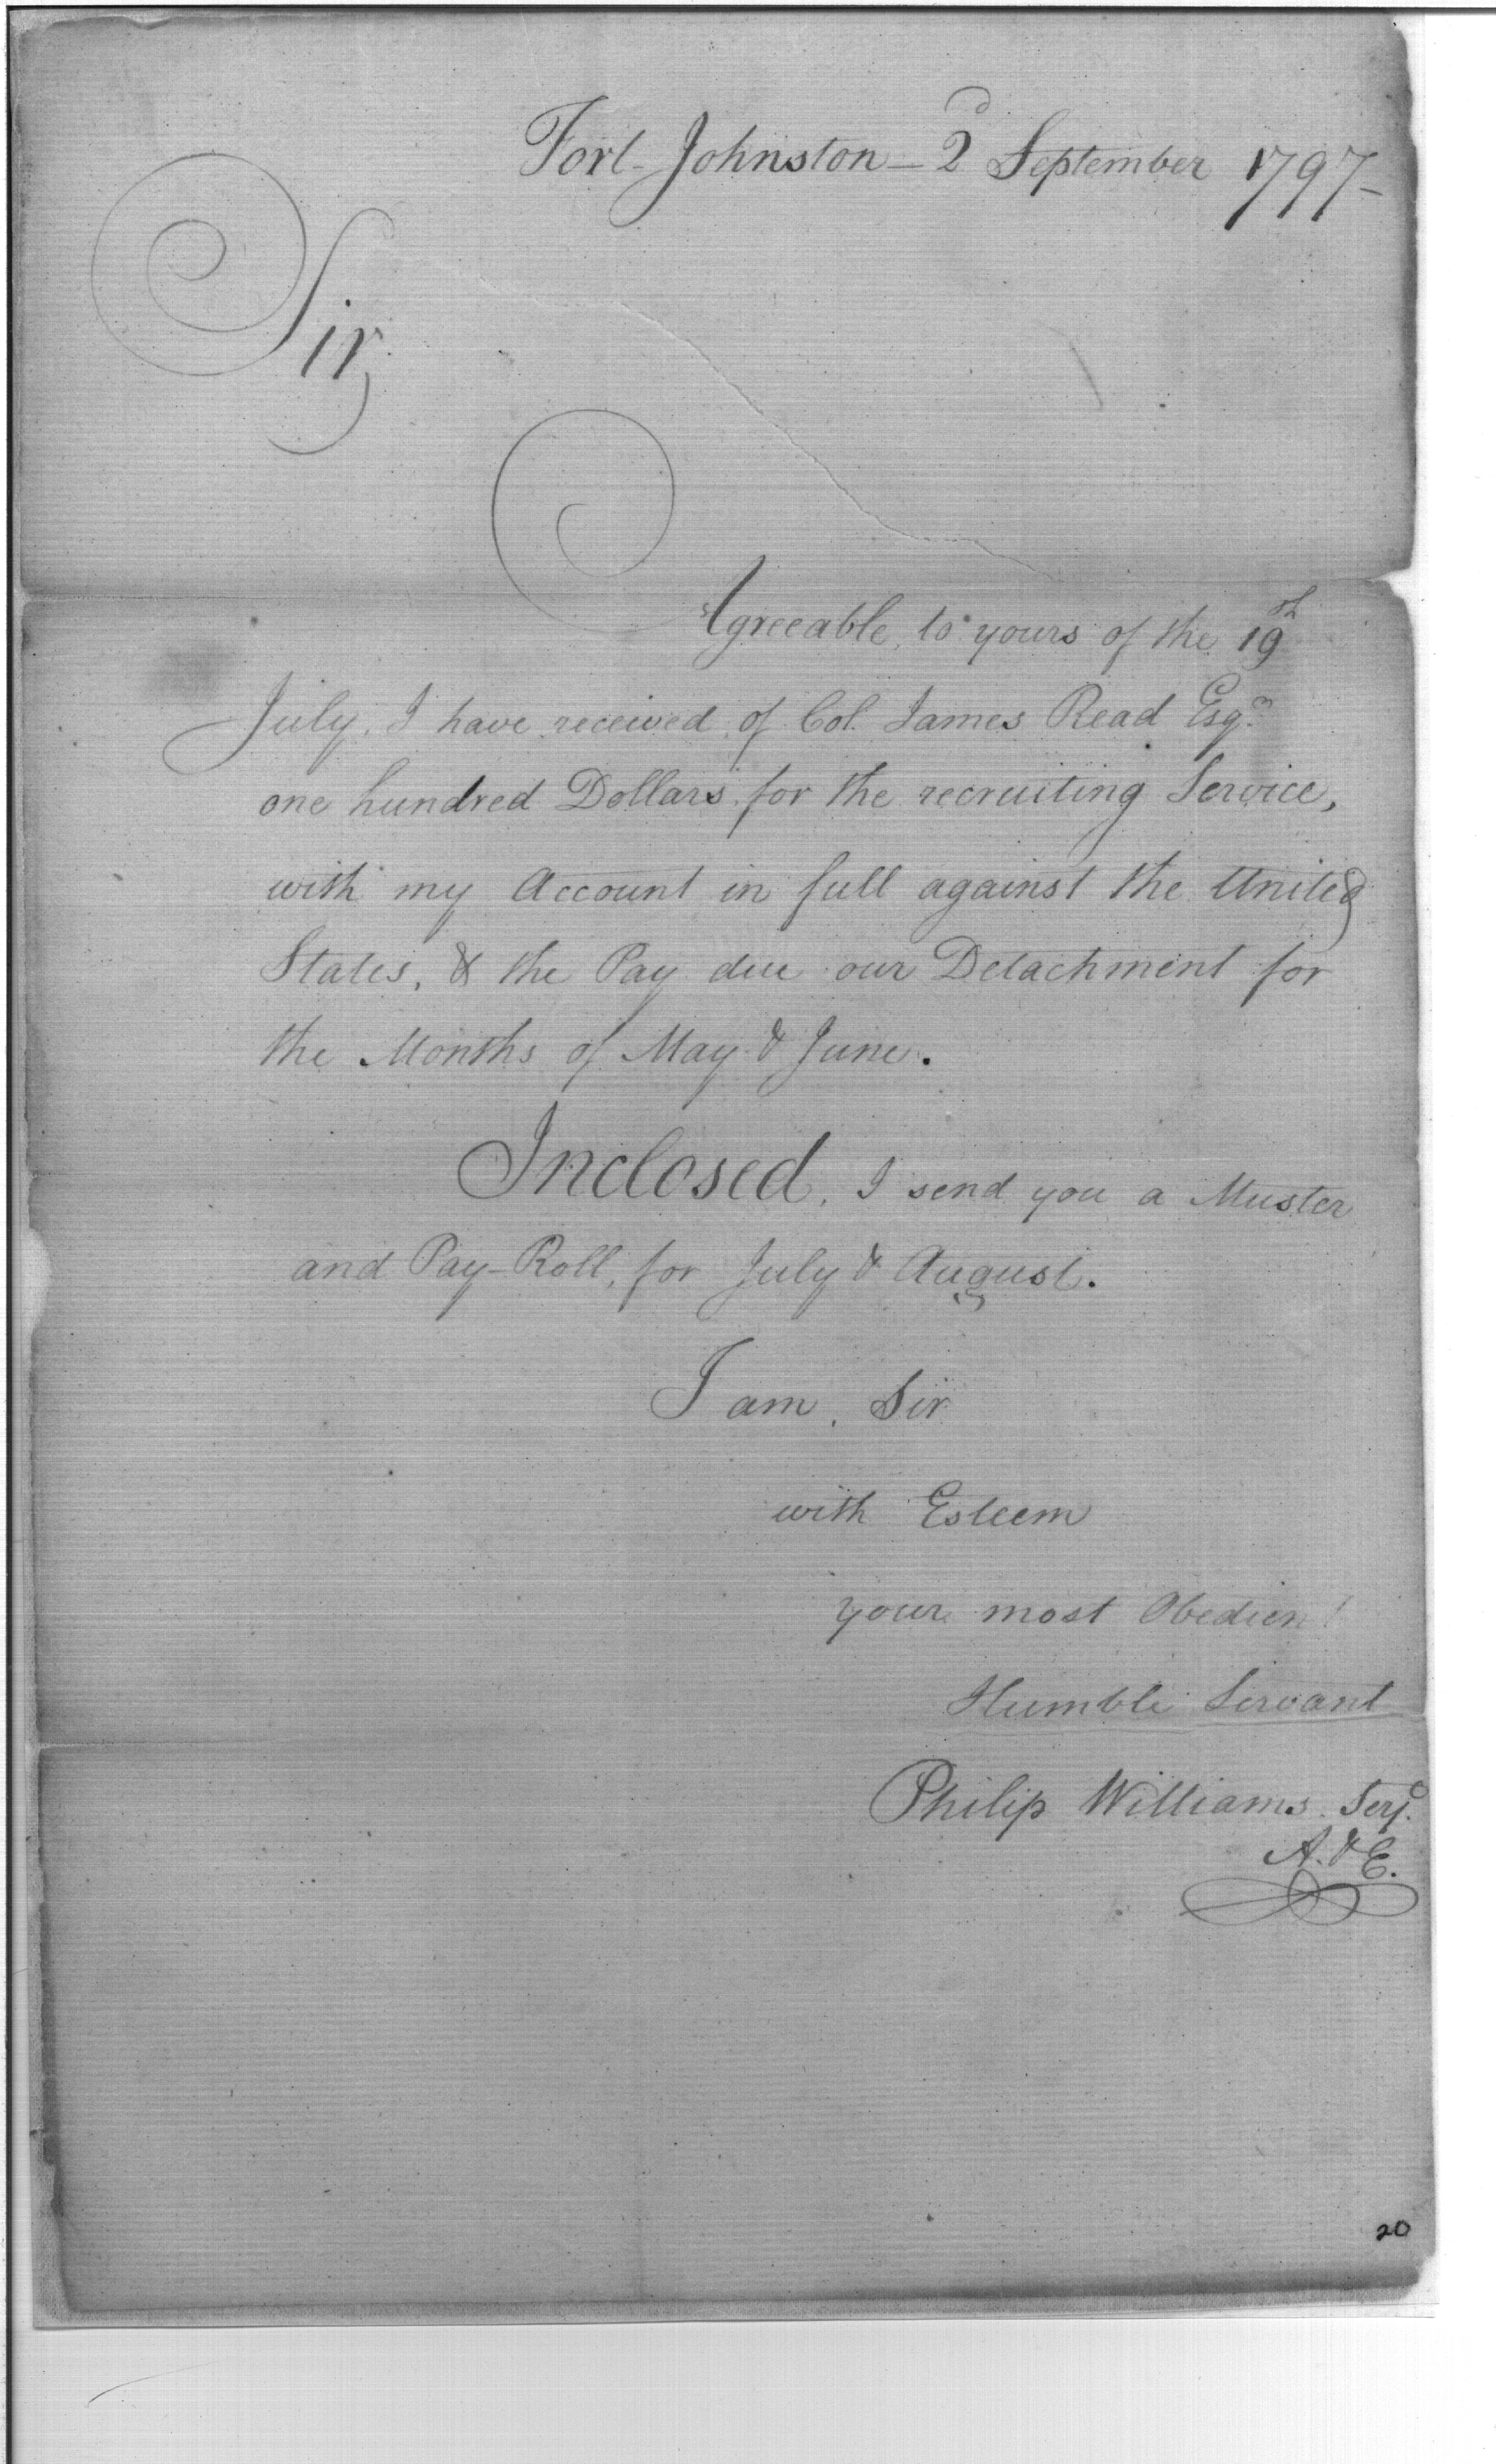 Fort-Johnston - 2d September 1797-
Sir,
Agreeable, to yours of the 19th
July, I have received, of Col. James Read Esqr.
one hundred Dollars, for the recruiting Service,
with my Account in full against the United
States, & the Pay due our Detachment for
the Months of May & June.
Inclosed, I send you a Muster
and Pay-Roll, for July & August.
I am, Sir
with Esteem
your most Obedient
Humble Servant
Philip Williams. Serjt.
A. & E.
20